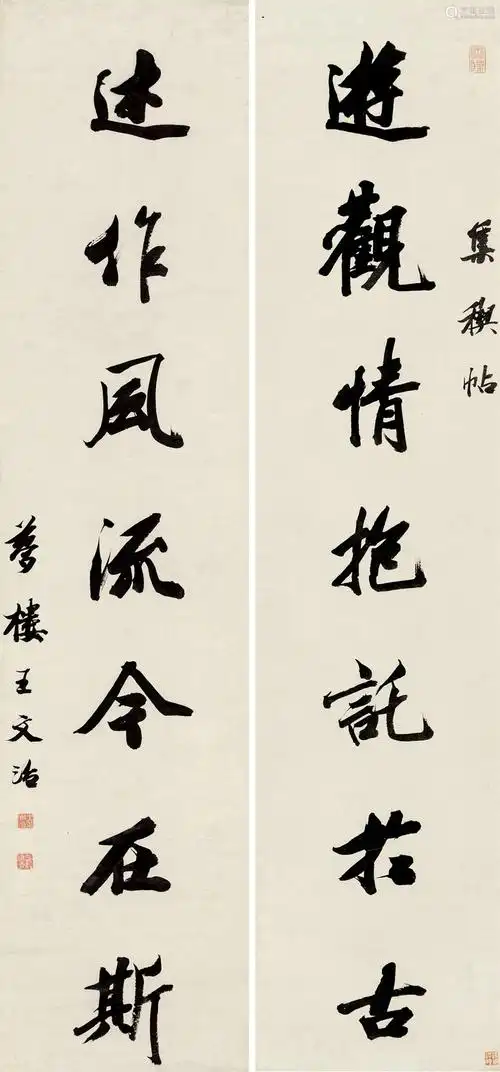 集稧帖
遊觀情抱託於古
述作風流今在斯
夢樓王文治